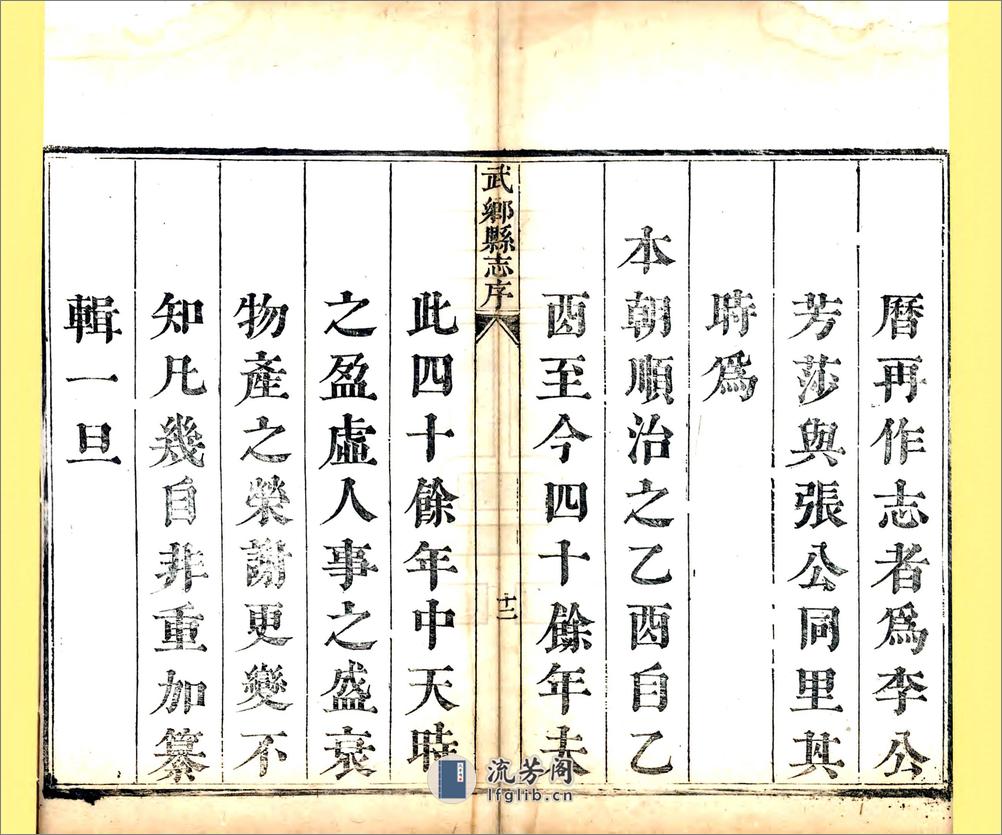 曆再作志者爲李公
芳莎與張公同里其
時爲
本朝順治之乙酉自乙
酉至今四十餘年夫
武鄉縣志序
十二
此四十餘年中天時
之盈虛人事之盛衰
物產之榮謝更變不
知凡幾自非重加纂
輯一旦
流芳阁
lfglib.cn